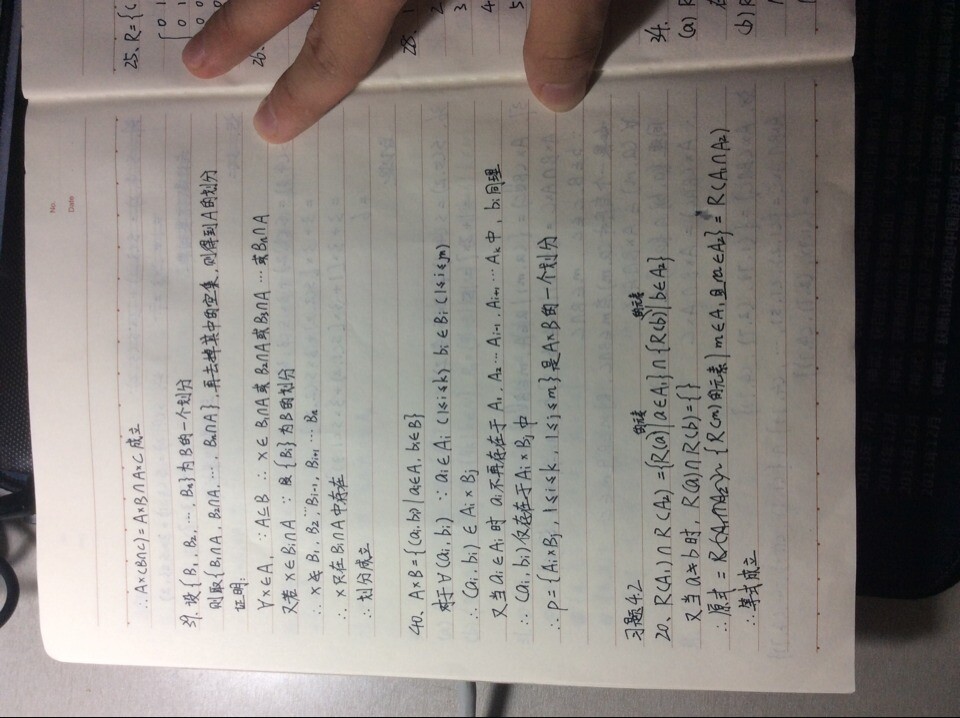 No.
Date
∴ A×(B∩C)=A×B∩A×C 成立
39. 设{B₁, B₂, …, Bn}为B的一个划分
则取{B₁∩A, B₂∩A, …, Bn∩A}, 再去掉其中的空集, 则得到A的划分
证明:
∀x∈A, ∵A⊆B ∴ x∈ B₁∩A或 B₂∩A或B₃∩A …或Bn∩A
又若 x∈Bi∩A ∵ {Bi}为B的划分
∴ x∉ B₁, B₂, … Bi-1, Bi+1 … Bn
∴ x只在Bi∩A中存在
∴ 划分成立
40、A×B={(ai,bi)|ai∈A, bi∈B}
对于∀(ai,bi) ∵ ai∈Ai (1≤i≤k) bi∈Bi (1≤i≤m)
∴ (ai,bi)∈Ai×Bj
又当ai∈Ai时 ai不再存在于 A₁, A₂… Ai-1, Ai+1 … Ak中, bi同理
∴ (ai,bi)仅存在于Ai×Bj中
∴ p={Ai×Bj, 1≤i≤k, 1≤j≤m}是A×B的一个划分
习题4.2
20、R(A₁)∩R(A₂)={R(a)的元素|a∈A₁}∩{R(b)的元素|b∈A₂}
又当a≠b时, R(a)∩R(b)={}
∴原式 = {R(m)的元素|m∈A₁且m∈A₂}=R(A₁∩A₂)
∴等式成立
25、R={(
0 1
0 1
0 0
26、
28、1
2
3
4
5
34.
(a) R
在
(b) R